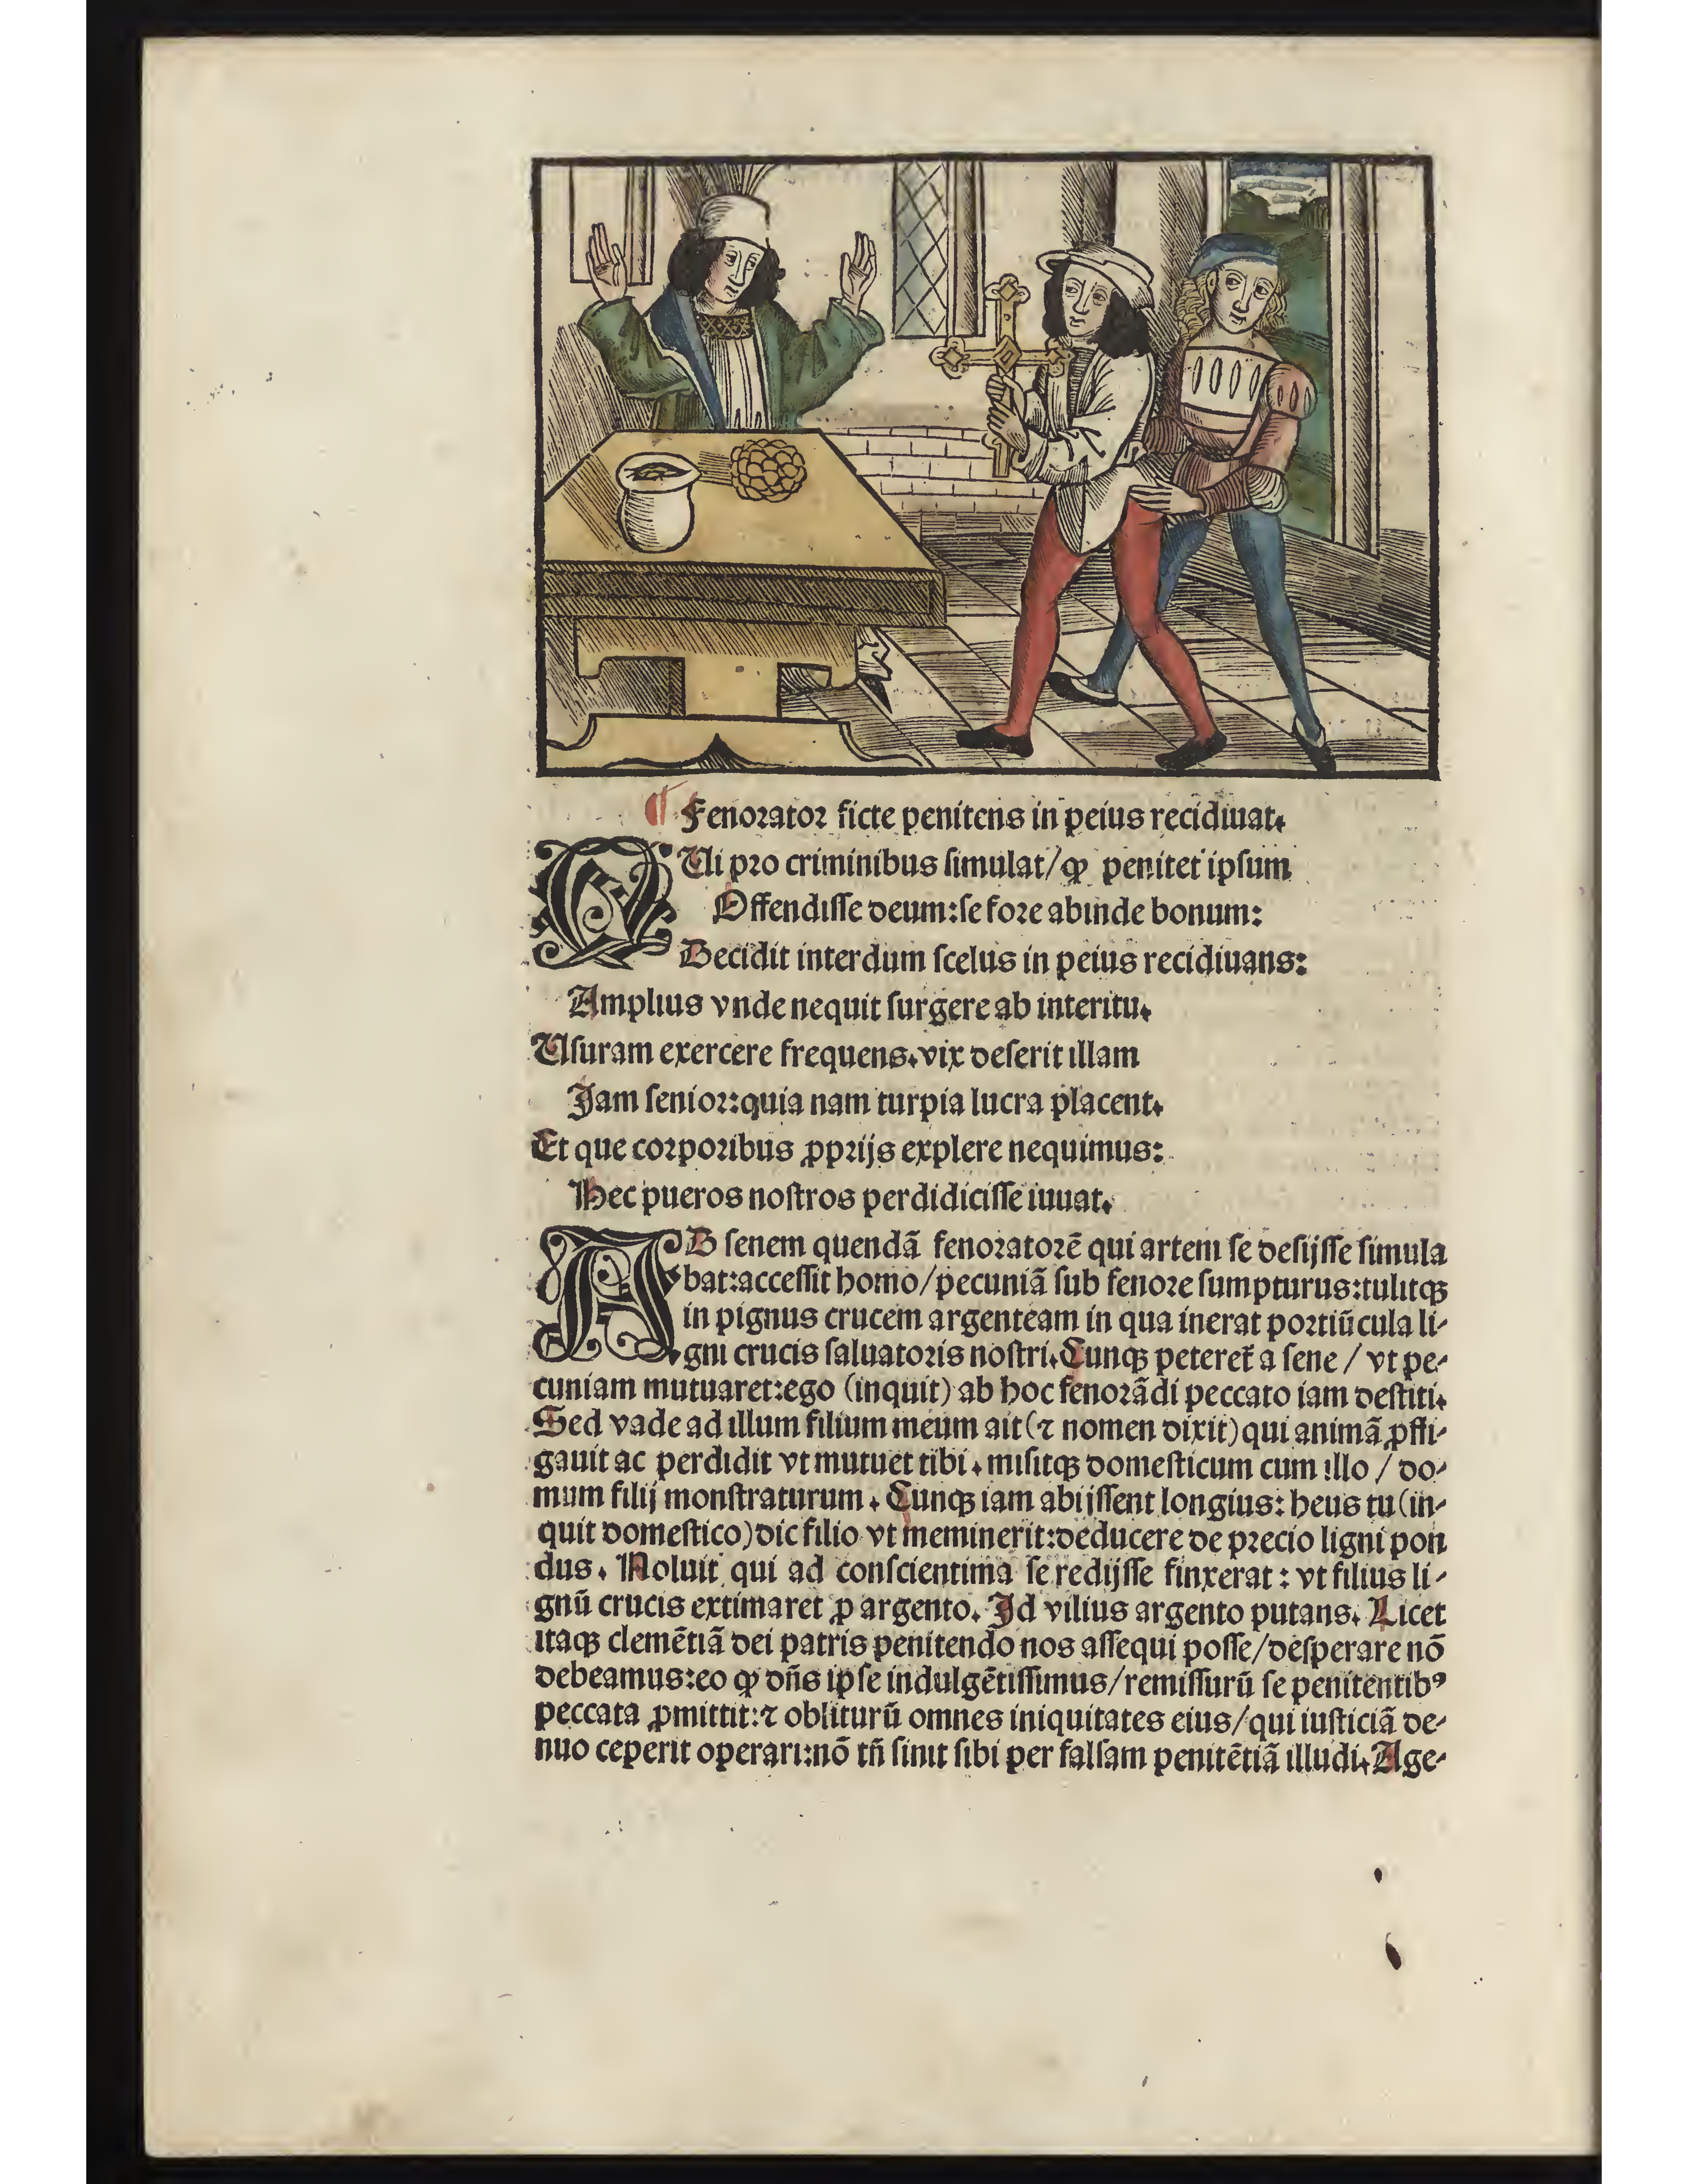 ¶ Fenorator ficte penitens in peius recidiuat.
QUi pro criminibus simulat/ꝙ penitet ipsum
Offendisse deum:se fore abinde bonum:
Decidit interdum scelus in peius recidiuans:
Amplius vnde nequit surgere ab interitu.
Usuram exercere frequens.vix deserit illam
Jam senior:quia nam turpia lucra placent.
Et que corporibus ꝓprijs explere nequimus:
Hec pueros nostros perdidicisse iuuat.
AD senem quendã fenoratorẽ qui artem se desijsse simula
bat:accessit homo/pecuniã sub fenore sumpturus:tulitqꝫ
in pignus crucem argenteam in qua inerat portiũcula li-
gni crucis saluatoris nostri.Cunqꝫ peteret̃ a sene / vt pe-
cuniam mutuaret:ego (inquit) ab hoc fenorãdi peccato iam destiti.
Sed vade ad illum filium meum ait(⁊ nomen dixit)qui animã ꝓfli-
gauit ac perdidit vt mutuet tibi . misitqꝫ domesticum cum illo / do-
mum filij monstraturum . Cunqꝫ iam abijssent longius: heus tu(in-
quit domestico)dic filio vt meminerit:deducere de precio ligni pon
dus. Noluit qui ad conscientima se redijsse finxerat : vt filius li-
gnũ crucis extimaret ꝓ argento. Id vilius argento putans. Licet
itaqꝫ clemẽtiã dei patris penitendo nos assequi posse/desperare nõ
debeamus:eo ꝙ dñs ipse indulgẽtissimus/remissurũ se penitentibꝰ
peccata ꝓmittit:⁊ obliturũ omnes iniquitates eius/qui iusticiã de-
nuo ceperit operari:nõ tñ sinit sibi per falsam penitẽtiã illudi.Age-